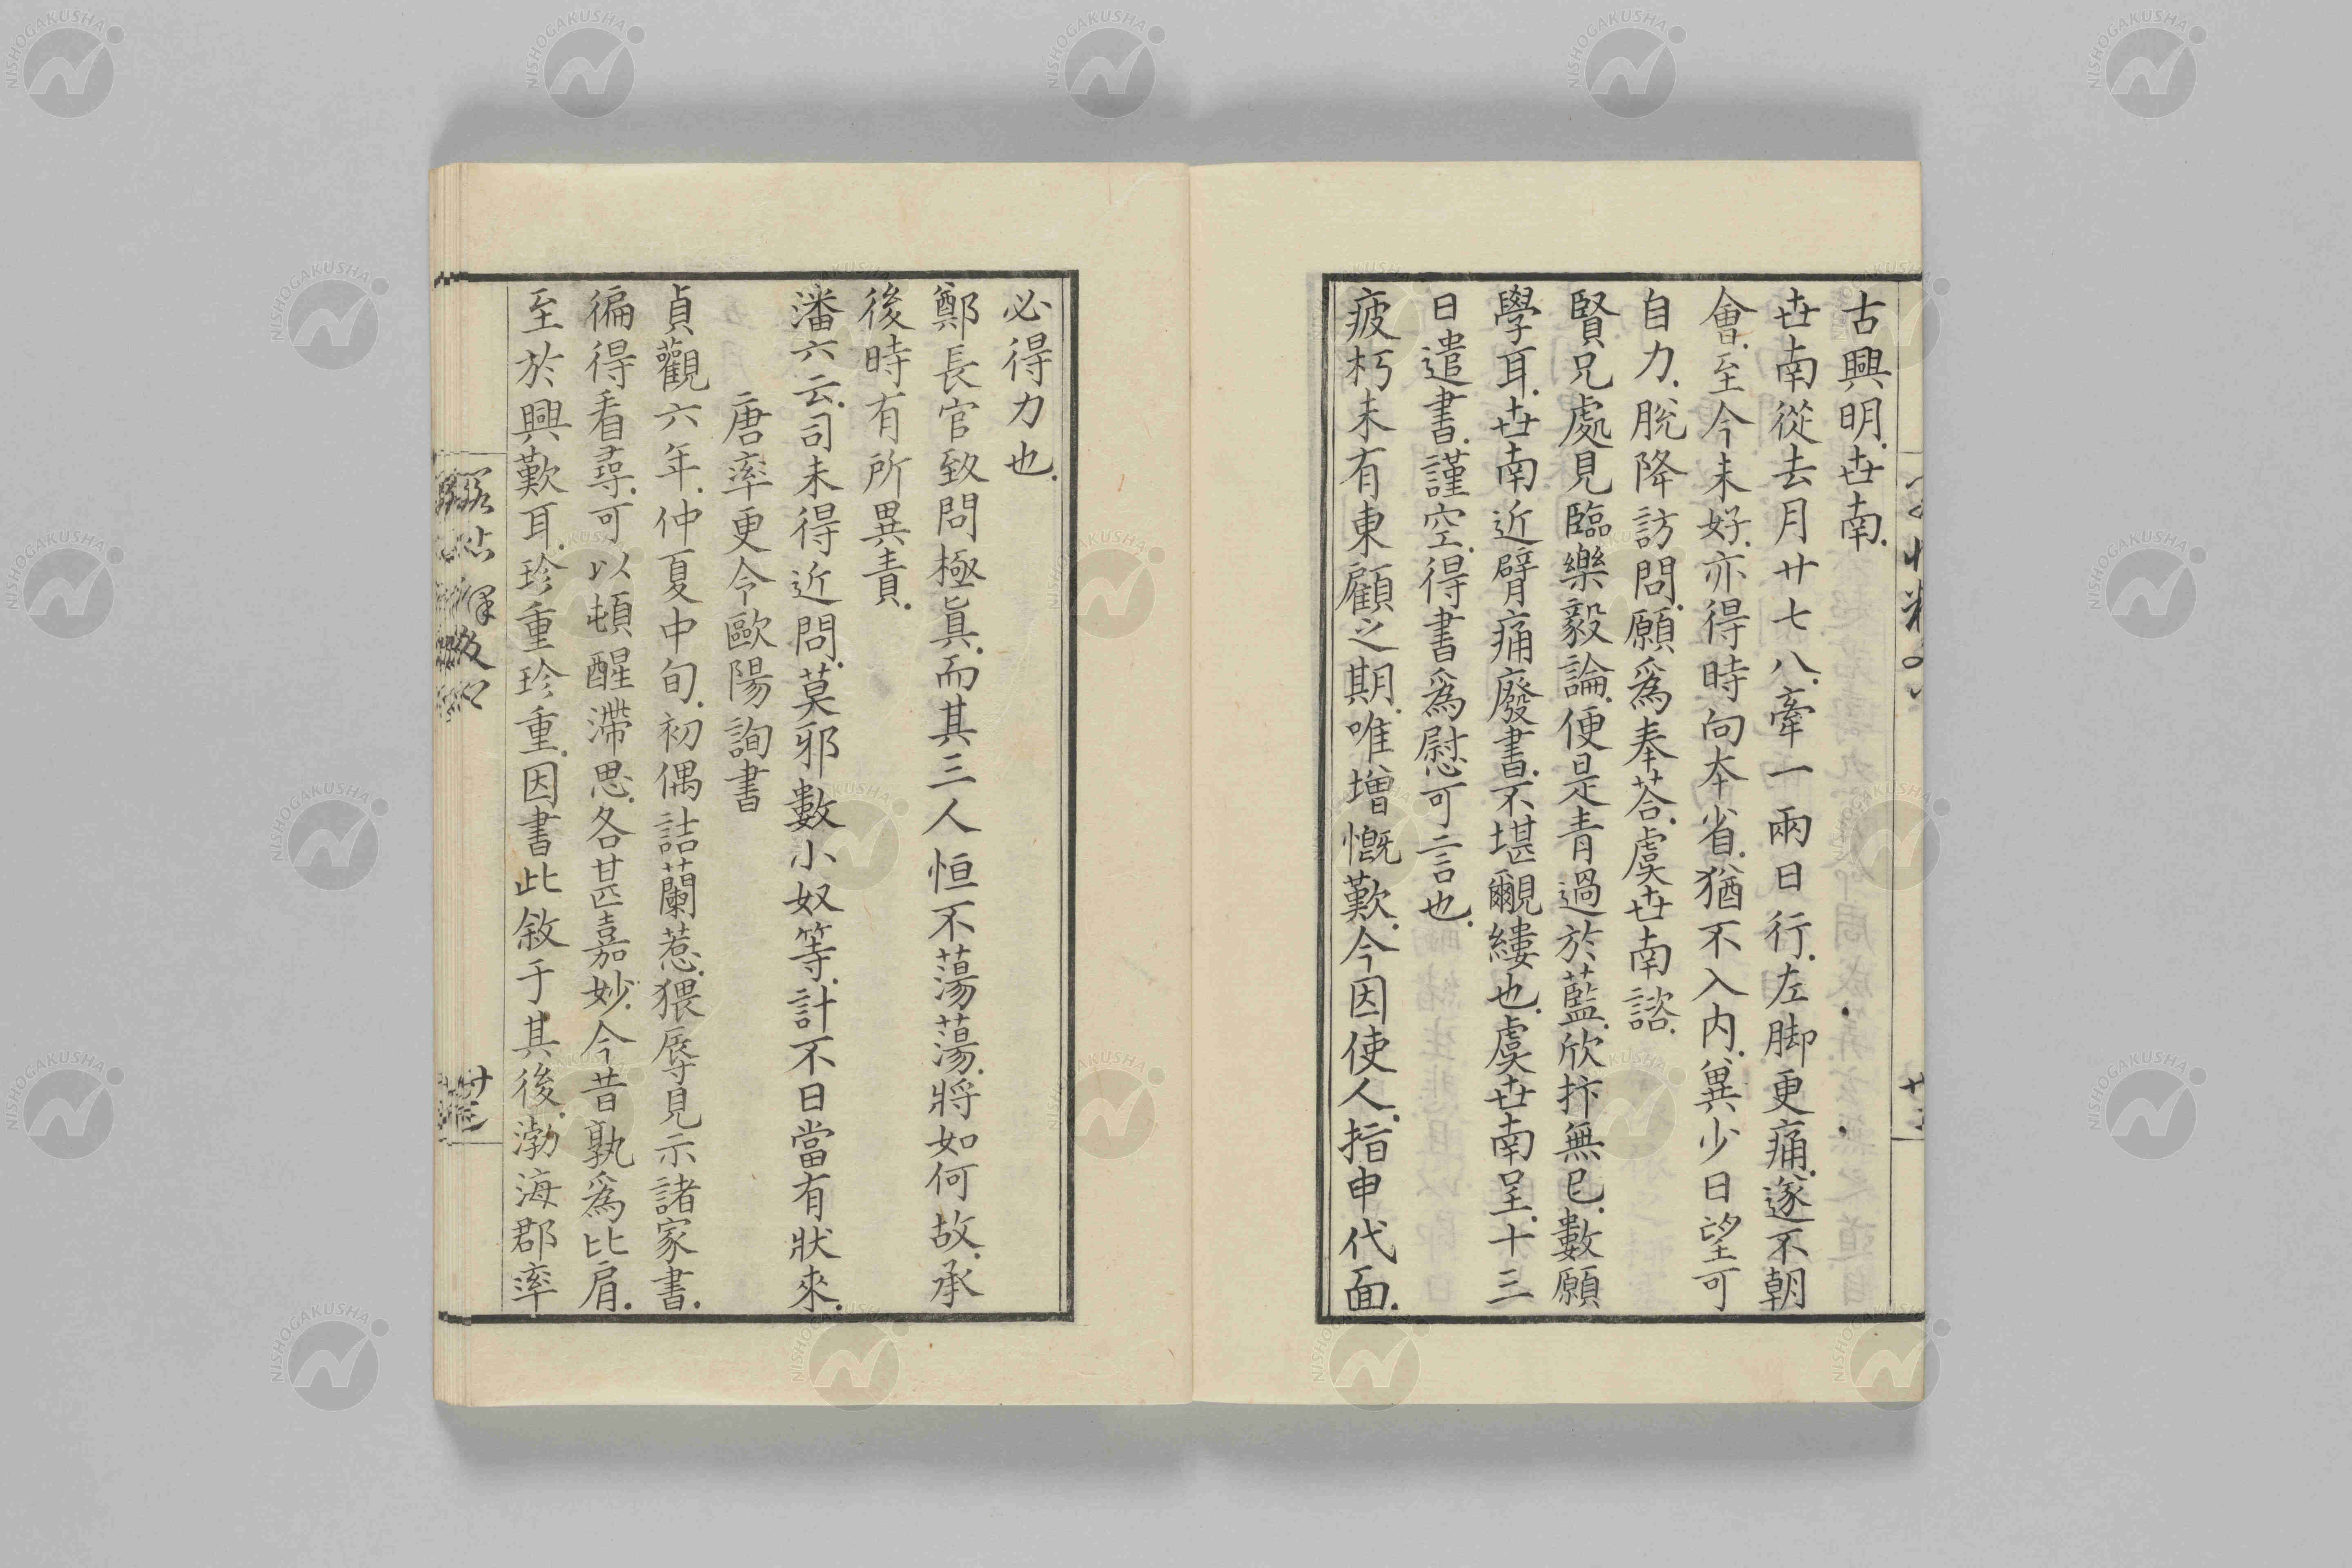 古興明.世南.
世南從去月廿七八.牽一兩日行.左脚更痛.遂不朝
會.至今未好.亦得時向本省.猶不入内.異少日望可
自力.脫降訪問.願爲奉荅.虞世南諮.
賢兄處見臨樂毅論.便是青過於藍.欣抃無已.數願
學耳.世南近臂痛廢書.不堪覼縷也.虞世南呈.十三
日遣書.謹空.得書爲慰可言也.
疲朽未有東顧之期.唯增慨歎.今因使人.指申代面.
必得力也.
鄭長官致問極眞.而其三人恒不蕩蕩.將如何故.承
後時有所異責.
潘六云.司未得近問.莫邪數小奴等.計不日當有狀來.
唐率更令歐陽詢書
貞觀六年.仲夏中旬.初偶詰蘭惹.猥辱見示諸家書.
徧得看尋.可以頓醒滯思.各甚嘉妙.今昔孰爲比肩.
至於興歎耳.珍重珍重.因書此敘于其後.渤海郡率
NISHOGAKUSHA